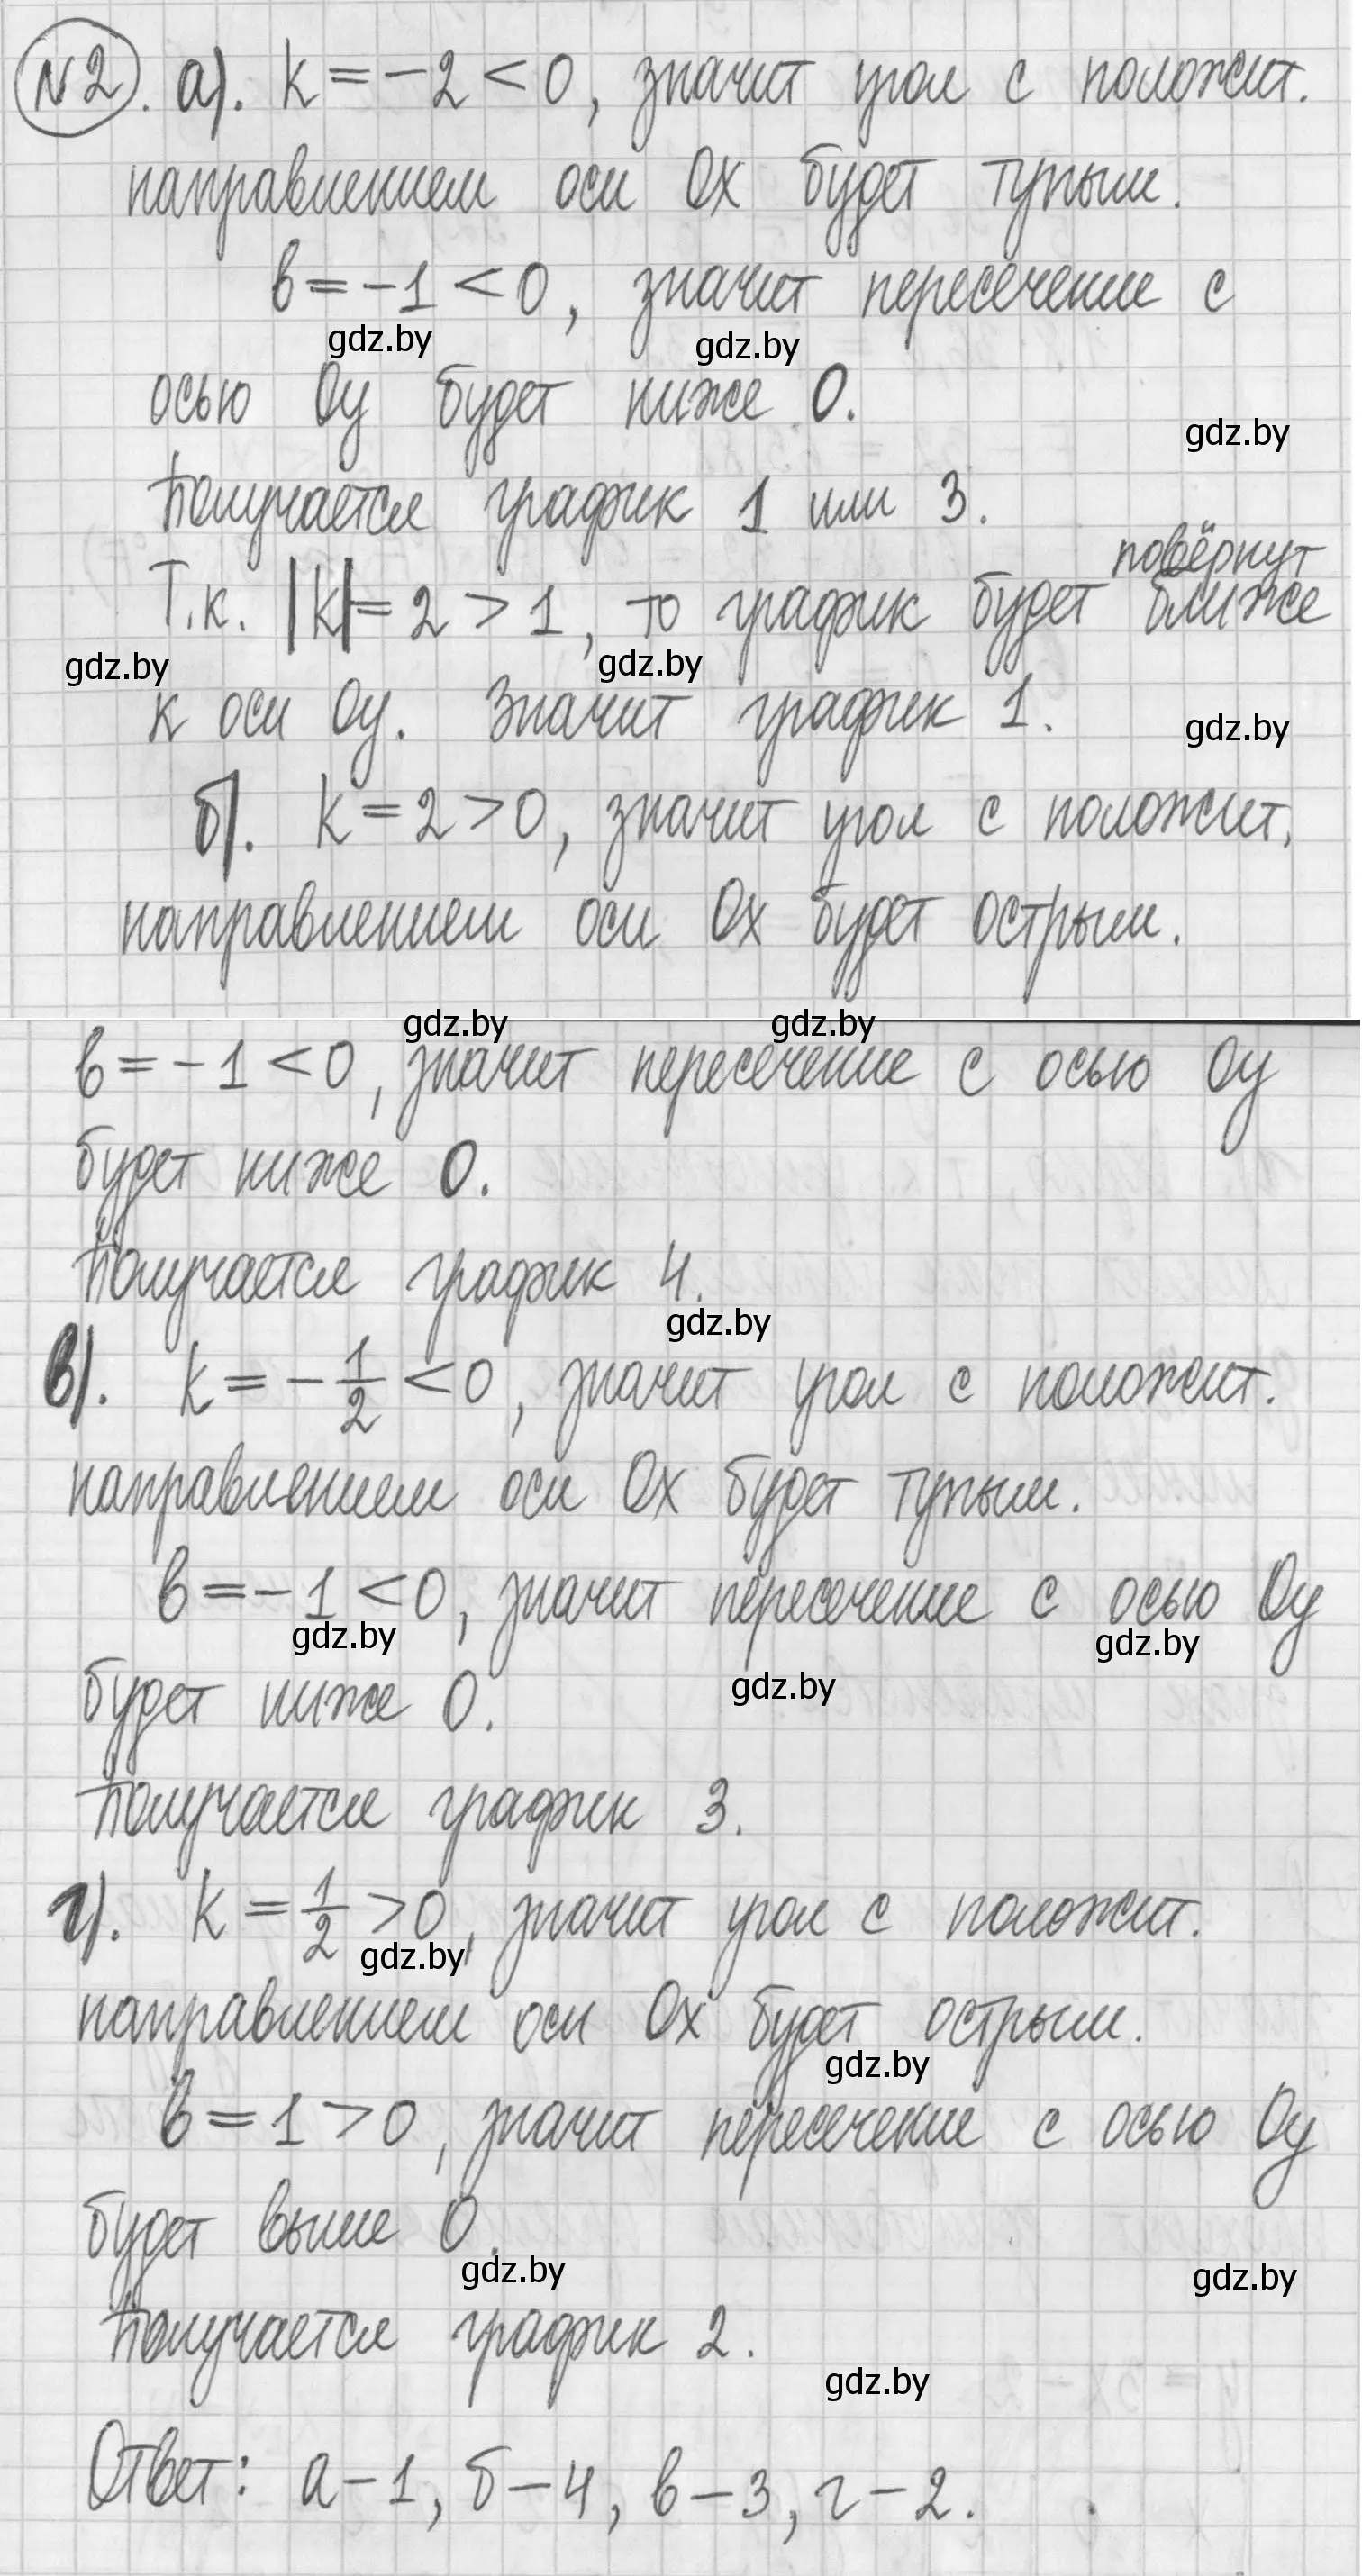 №2. а). k = -2 < 0, значит угол с положит.
направлением оси Ox будет тупым.
b = -1 < 0, значит пересечение с
gdz.by gdz.by
осью Oy будет ниже 0.
gdz.by
Получается график 1 или 3.
повёрнут
Т.к. |k| = 2 > 1, то график будет ближе
gdz.by gdz.by
к оси Oy. Значит график 1.
gdz.by
б). k = 2 > 0, значит угол с положит.
направлением оси Ox будет острым.
gdz.by gdz.by
b = -1 < 0, значит пересечение с осью Oy
будет ниже 0.
Получается график 4.
gdz.by
в). k = -1/2 < 0, значит угол с положит.
направлением оси Ox будет тупым.
b = -1 < 0, значит пересечение с осью Oy
gdz.by gdz.by
будет ниже 0.
gdz.by
Получается график 3.
г). k = 1/2 > 0, значит угол с положит.
gdz.by
направлением оси Ox будет острым.
gdz.by
b = 1 > 0, значит пересечение с осью Oy
будет выше 0.
gdz.by gdz.by
Получается график 2.
gdz.by
Ответ: а - 1, б - 4, в - 3, г - 2.